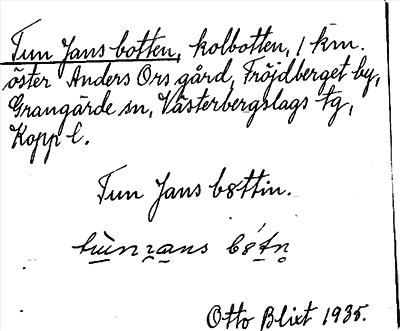 Tun Jans botten, kolbotten, 1 km.
öster Anders Ors gård, Fröjdberget by,
Grangärde sn, Västerbergslags tg,
Kopp l.
Tun Jans bøttin.
Otto Blixt 1935.